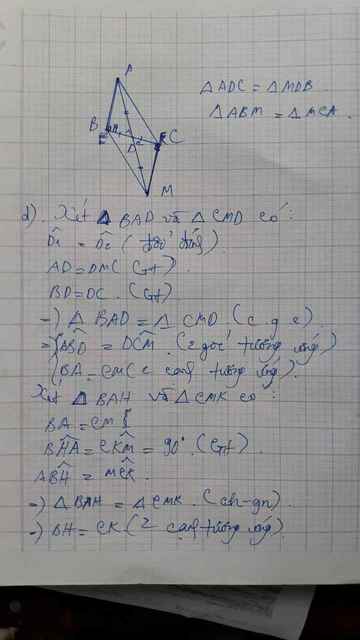 A
△ADC = △MDB
△ABM = △MCA
B
C
D
M
d). Xét △ BAD và △ CMD có:
D̂₁ = D̂₂ (đối đỉnh).
AD = DM ( Gt)
BD = DC . (Gt)
=) △ BAD = △ CMD (c g c)
=) { ABD̂ = DCM̂ . (2 góc tương ứng)
BA = CM (2 cạnh tương ứng).
Xét △ BAH và △ CMK có :
BA = CM
BHÂ = CKM̂ = 90° . (Gt)
ABĤ = MCK̂ .
=) △ BAH = △ CMK . (ch-gn).
=) BH = CK ( 2 cạnh tương ứng).